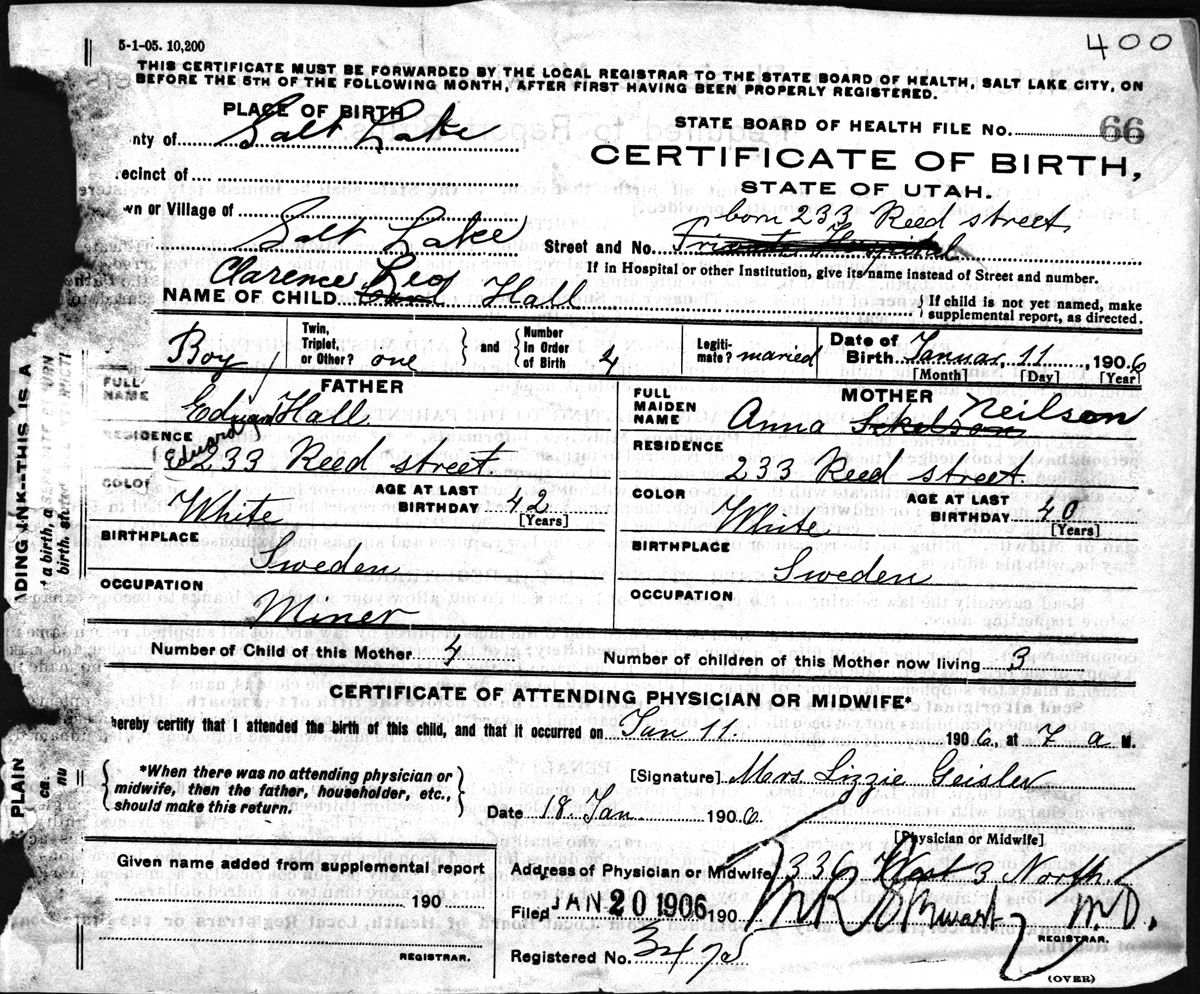 5-1-05. 10,200
400
THIS CERTIFICATE MUST BE FORWARDED BY THE LOCAL REGISTRAR TO THE STATE BOARD OF HEALTH, SALT LAKE CITY, ON
BEFORE THE 5TH OF THE FOLLOWING MONTH, AFTER FIRST HAVING BEEN PROPERLY REGISTERED.
PLACE OF BIRTH
nty of Salt Lake
STATE BOARD OF HEALTH FILE NO. 66
CERTIFICATE OF BIRTH,
STATE OF UTAH.
recinct of
wn or Village of
born 233 Reed street
Salt Lake Street and No. Private Hospital
If in Hospital or other Institution, give its name instead of Street and number.
Clarence Leo
NAME OF CHILD. Hall
{If child is not yet named, make
supplemental report, as directed.
Boy Twin, Triplet, or Other? one } and { Number In Order of Birth 4 Legiti-mate? married Date of Birth Januar, 11, 1906
[Month] [Day] [Year]
FATHER
FULL NAME Hall
Edward
RESIDENCE
233 Reed street
COLOR White AGE AT LAST BIRTHDAY 42
[Years]
BIRTHPLACE
Sweden
OCCUPATION
Miner
MOTHER
FULL MAIDEN NAME Anna Neilson
RESIDENCE
233 Reed street.
COLOR White AGE AT LAST BIRTHDAY 40
[Years]
BIRTHPLACE
Sweden
OCCUPATION
Number of Child of this Mother 4 Number of children of this Mother now living 3
CERTIFICATE OF ATTENDING PHYSICIAN OR MIDWIFE*
hereby certify that I attended the birth of this child, and that it occurred on Jan 11. 1906, at 7 a M.
{ *When there was no attending physician or
midwife, then the father, householder, etc.,
should make this return. }
[Signature] Mrs Lizzie Geisler
Date 18. Jan 1906.
[Physician or Midwife]
Given name added from supplemental report
190
REGISTRAR.
Address of Physician or Midwife 336 West 3 North
Filed JAN 20 1906 190 M.D.
REGISTRAR.
Registered No. 3475
(OVER)
DING INK—THIS IS A
PLAIN